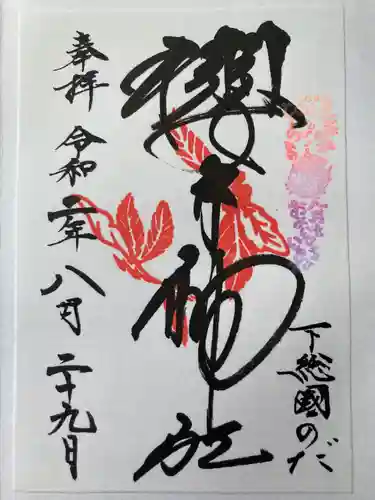 下総國のだ
櫻木神社
奉拝 令和二年八月二十九日